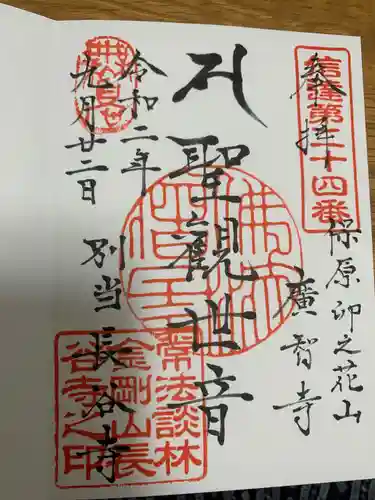 奉拝
信達第二十四番
保原卯之花山
廣智寺
聖觀世音
佛法僧寶
令和二年
九月廿二日
別当長谷寺
常法談林
金剛山長
谷寺之印